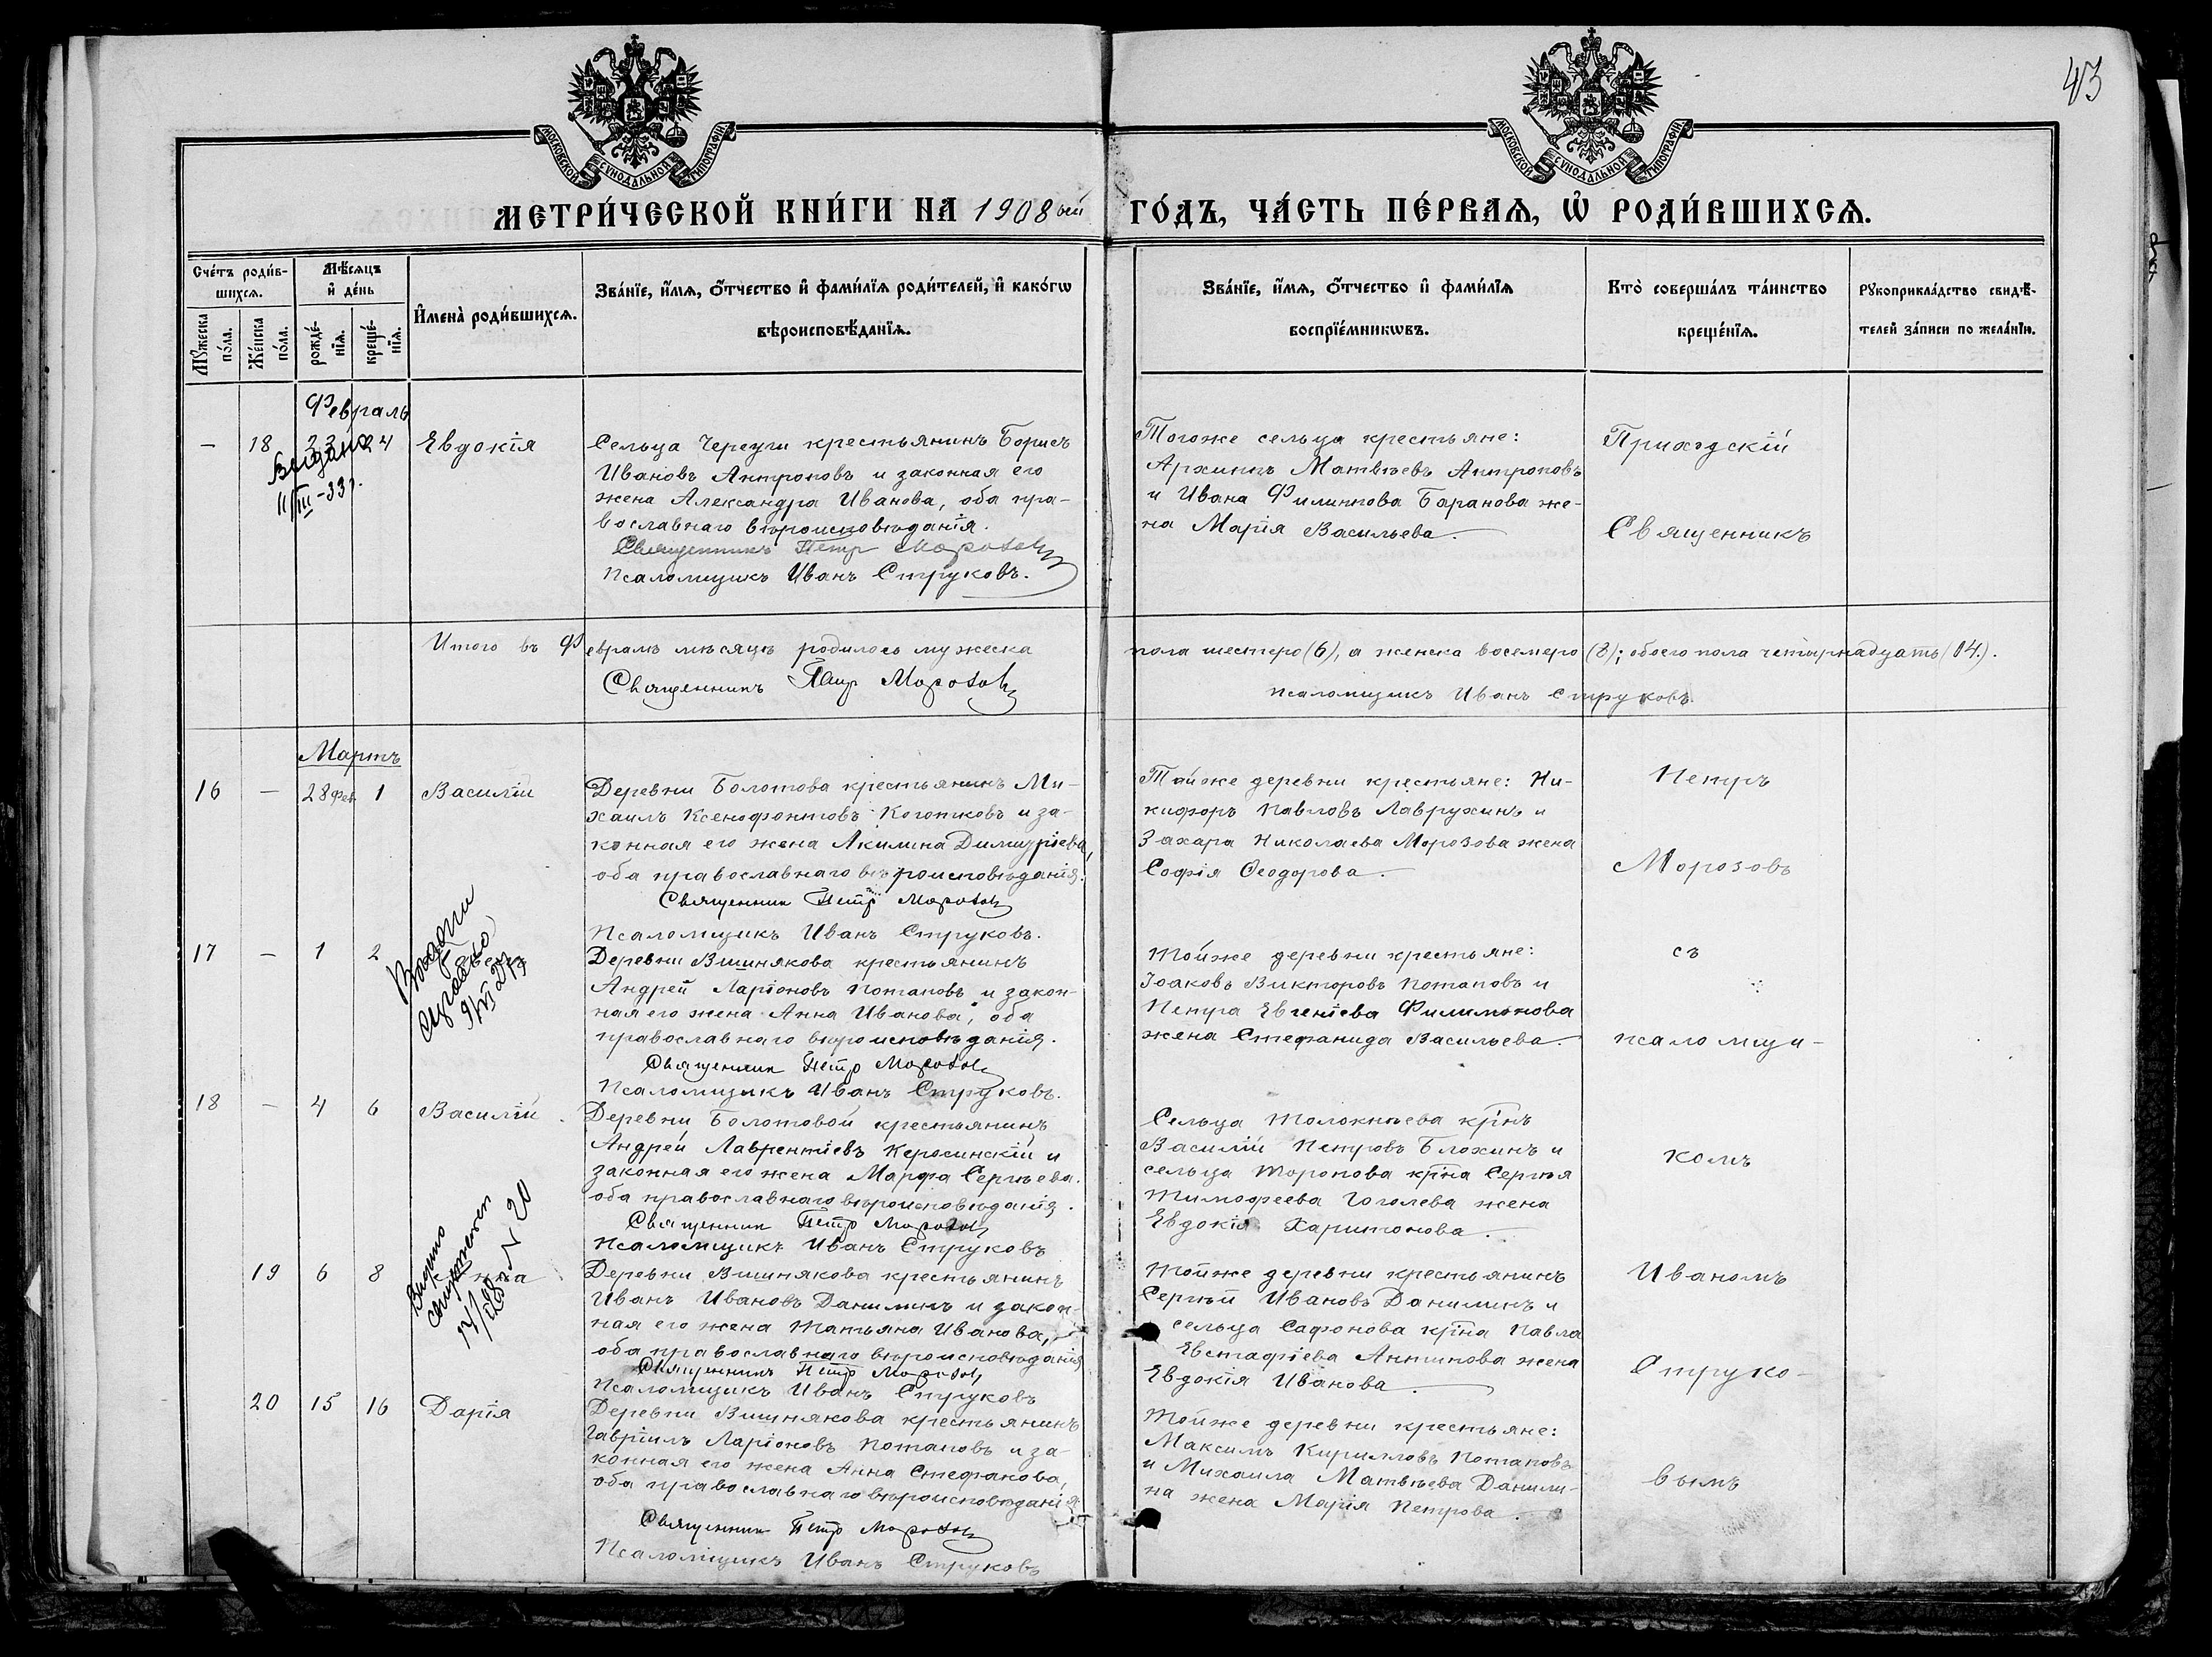 43
МОСКОВСКОЙ СѴНОДАЛЬНОЙ ТИПОГРАФІИ
МОСКОВСКОЙ СѴНОДАЛЬНОЙ ТИПОГРАФІИ
МЕТРИ́ЧЕСКОЙ КНИ́ГИ НА 1908ый ГО́ДЪ, ЧА́СТЬ ПЕ́РВАѦ, Ѡ҆ РОДИ́ВШИХСѦ.
Сче́тъ роди́в-
шихсѧ.
Мꙋ́жеска по́ла.
Же́нска по́ла.
Мѣ́сѧцъ
и҆ де́нь
рожде́-
нїѧ.
креще́-
нїѧ.
И҆мена̀ роди́вшихсѧ.
Зва́нїе, и҆́мѧ, ѻ҆́тчество и҆ фами́лїѧ роди́телей, и҆ како́гѡ
вѣроисповѣ́данїѧ.
Зва́нїе, и҆́мѧ, ѻ҆́тчество и҆ фами́лїѧ
воспрїе́мникѡвъ.
Кто̀ соверша́лъ та́инство
креще́нїѧ.
Рꙋкоприкла́дство свидѣ́-
телей за́писи по жела́нїю.
Февраль
— 18 23 24 Евдокія
Выдана
11/III-33г.
Сельца Черезги крестьянинъ Борисъ
Ивановъ Антроповъ и законная его
жена Александра Иванова, оба пра-
вославнаго вѣроисповѣданія.
Священникъ Петр Морозовъ
Псаломщикъ Иванъ Струковъ.
Тогоже сельца крестьяне:
Архиппъ Матвѣевъ Антроповъ
и Ивана Филиппова Баранова же-
на Марія Васильева.
Приходскій
Священникъ
Итого въ Февралѣ мѣсяцѣ родилось мужеска пола шестеро (6), а женска восемеро (8); обоего пола четырнадцать (14.).
Священникъ Петр Морозовъ
Псаломщикъ Иванъ Струковъ.
Мартъ
16 — 28 Фев. 1 Василій
Деревни Болотова крестьянинъ Ми-
хаилъ Ксенофонтовъ Коготковъ и за-
конная его жена Акилина Димитріева,
оба православнаго вѣроисповѣданія.
Священник Петр Морозовъ
Псаломщикъ Иванъ Струковъ.
Тойже деревни крестьяне: Ни-
кифоръ Павловъ Лаврухинъ и
Захара Николаева Морозова жена
Софія Ѳеодорова.
Петръ
Морозовъ
17 — 1 2
Деревни Вишнякова крестьянинъ
Андрей Ларіоновъ Потаповъ и закон-
ная его жена Анна Иванова, оба
православнаго вѣроисповѣданія.
Священник Петр Морозовъ
Псаломщикъ Иванъ Струковъ.
Тойже деревни крестьяне:
Іоаковъ Викторовъ Потаповъ и
Петра Евгеніева Филимонова
жена Стефанида Васильева.
съ
псаломщи-
18 — 4 6 Василій
Деревни Болотовой крестьянинъ
Андрей Лаврентіевъ Керосинскій и
законная его жена Марфа Сергѣева.
оба православнаго вѣроисповѣданія.
Священник Петр Морозовъ
Псаломщикъ Иванъ Струковъ
Сельца Толокнѣева крнъ
Василій Петровъ Блохинъ и
сельца Торопова крна Сергѣя
Тимофеева Гоголева жена
Евдокія Харитонова.
комъ
19 6 8
Деревни Вишнякова крестьянинъ
Иванъ Ивановъ Данилинъ и закон-
ная его жена Татьяна Иванова,
оба православнаго вѣроисповѣданія
Священникъ Петр Морозовъ
Псаломщикъ Иванъ Струковъ
Тойже деревни крестьянинъ
Сергѣй Ивановъ Данилинъ и
сельца Сафонова крна Павла
Евстафіева Антипова жена
Евдокія Иванова.
Иваномъ
Струко-
20 15 16 Дарія
Деревни Вишнякова крестьянинъ
Гавріилъ Ларіоновъ Потаповъ и за-
конная его жена Анна Стефанова,
оба православнаго вѣроисповѣданія.
Священник Петр Морозовъ
Псаломщикъ Иванъ Струковъ
Тойже деревни крестьяне:
Максимъ Кирилловъ Потаповъ
и Михаила Матвѣева Данили-
на жена Марія Петрова.
вымъ